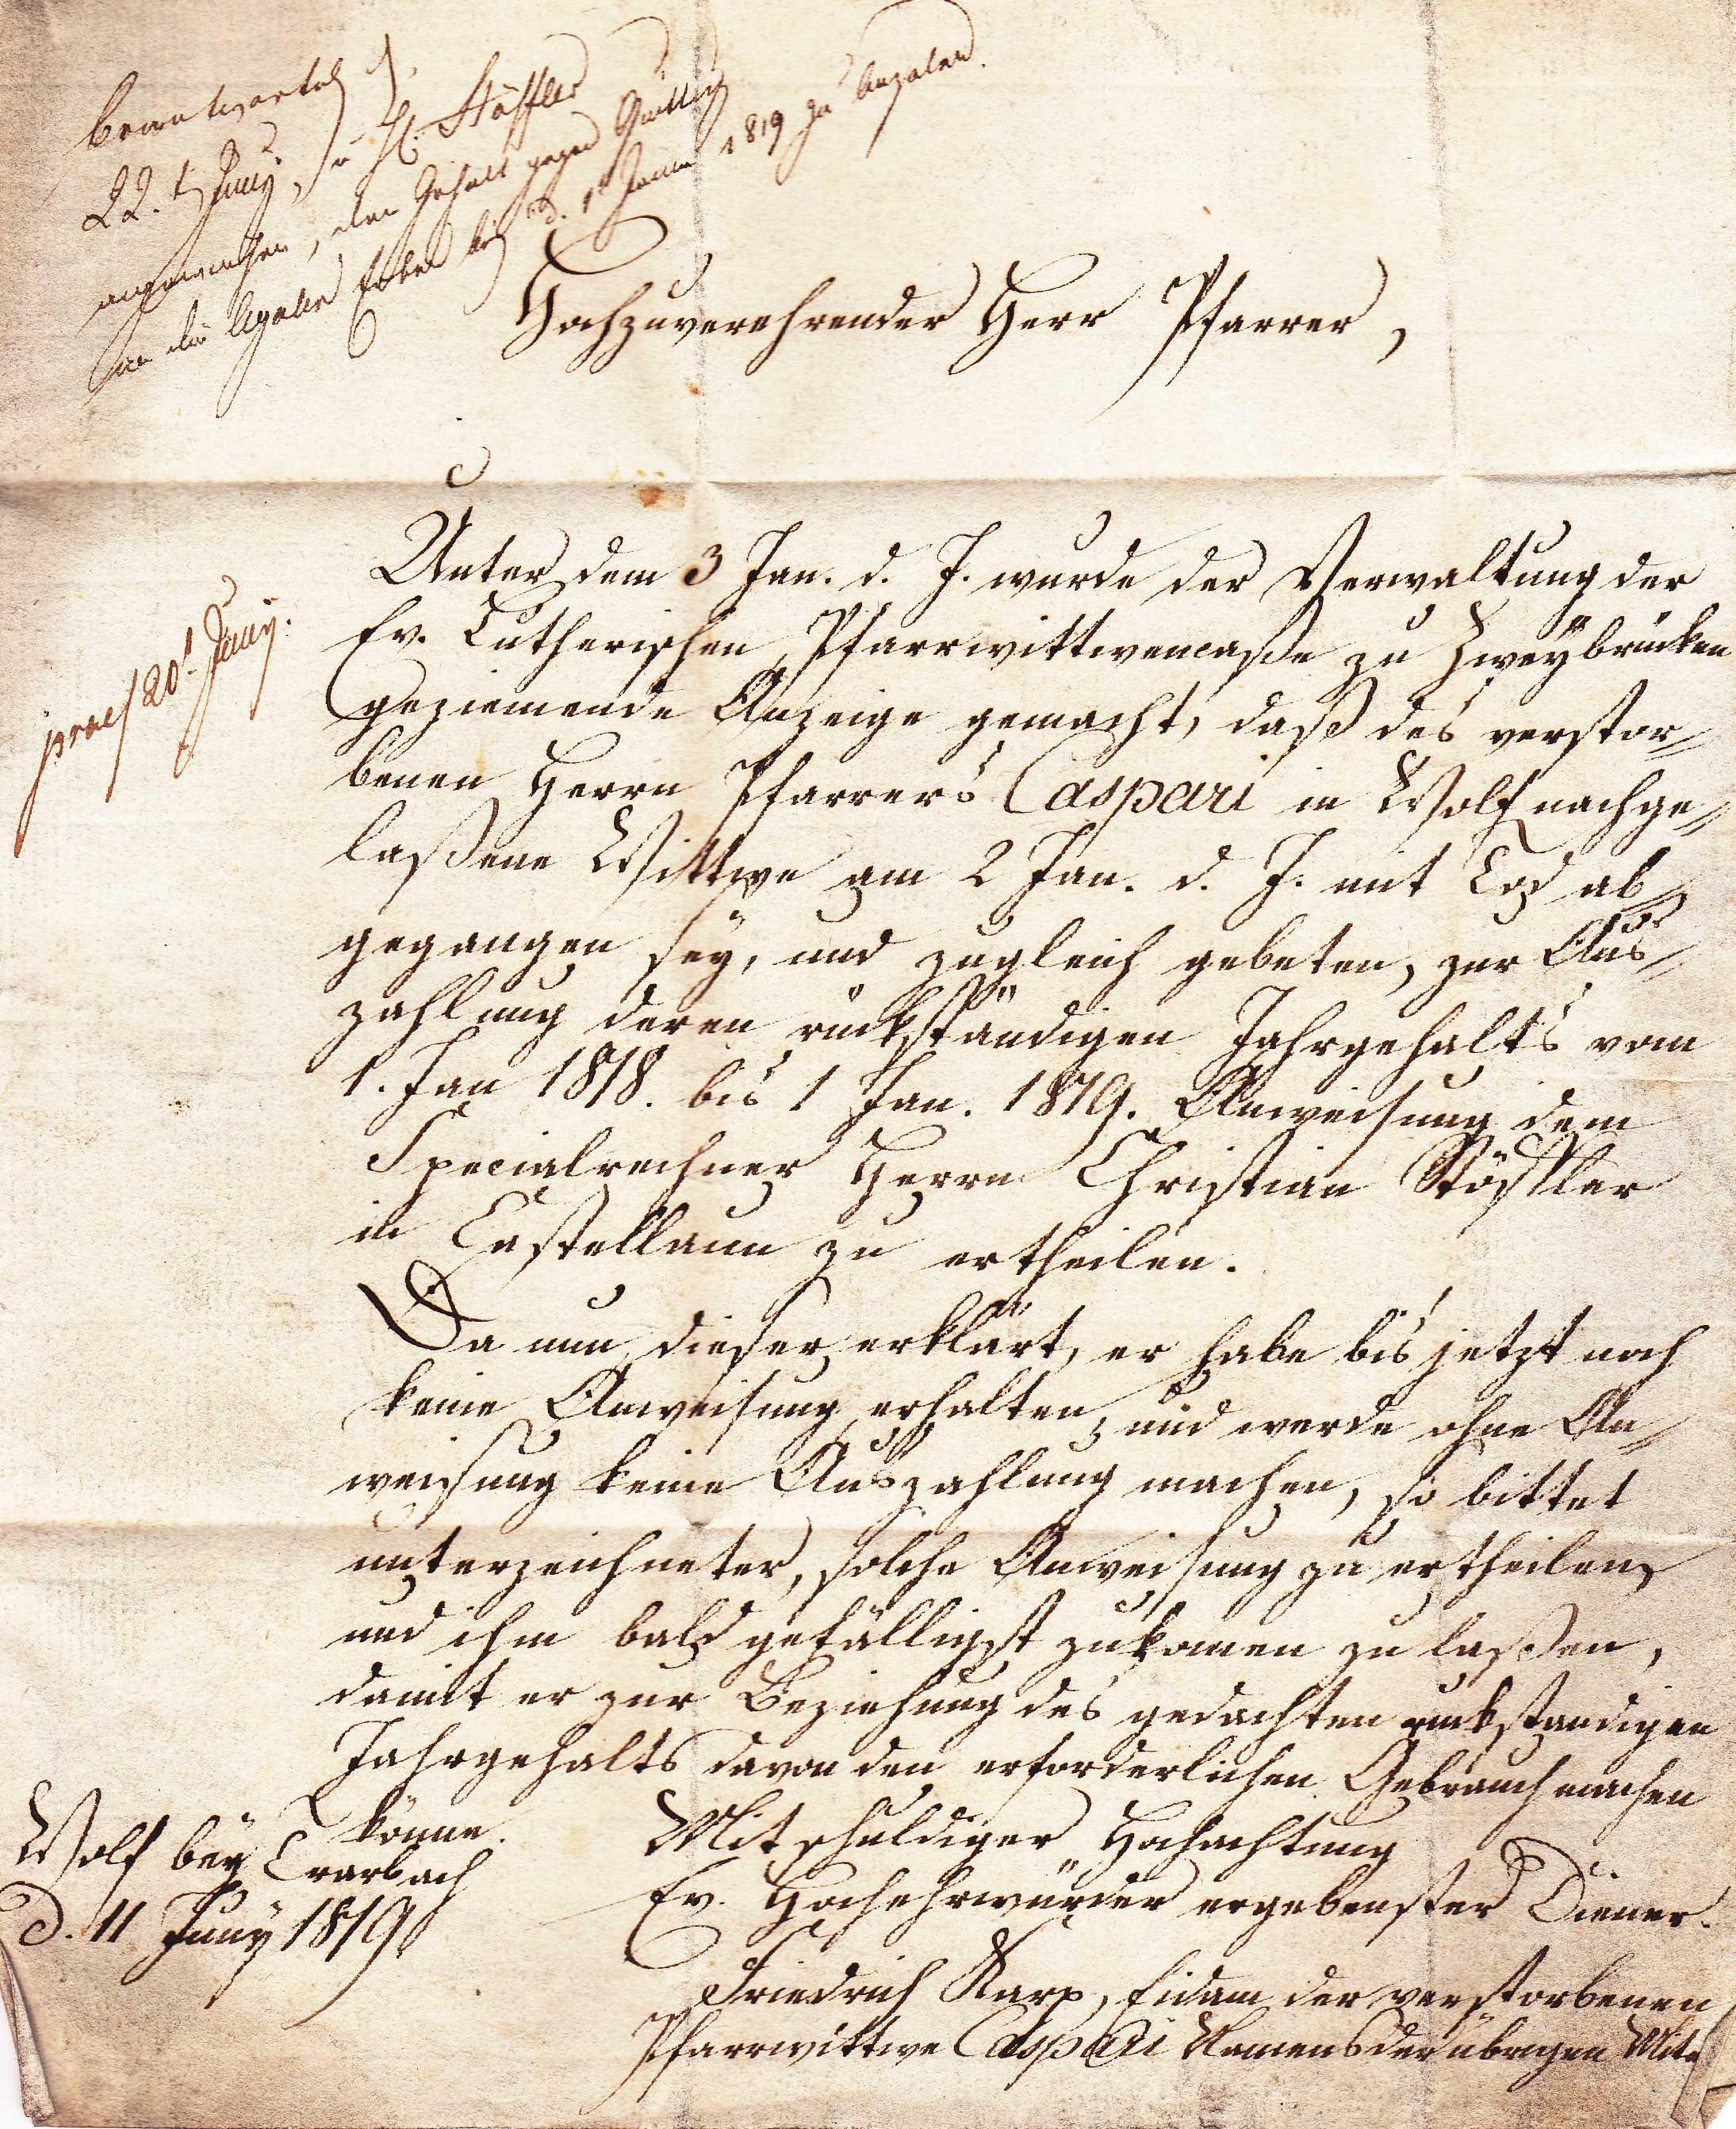 beantwortet d.
22. t Juny, u H. Stöffler
angewiesen, den Gehalt gegen Quittung
an die legalen Erben bis d. 1t Januar 1819 zu bezalen.
Hochzuverehrender Herr Pfarrer,
praes 20t Juny.
Unter dem 3 Jan. d. J. wurde der Verwaltung der
Ev. Lutherischen Pfarrwittwencaße zu Zweybrücken
geziemende Anzeige gemacht, daß des verstor=
benen Herrn Pfarrers Caspari in Wolf nachge=
laßene Wittwe am 2 Jan. d. J. mit Tod ab=
gegangen sey, und zugleich gebeten, zur Aus=
zahlung deren rückständigen Jahrgehalts vom
1. Jan 1818. bis 1 Jan. 1819. Anweisung dem
Specialrechner Herrn Christian Stöffler
in Castellaun zu ertheilen.
Da nun dieser erklärt, er habe bis jetzt noch
keine Anweisung erhalten, und werde ohne An=
weisung keine Auszahlung machen, so bittet
unterzeichneter, solche Anweisung zu ertheilen,
und ihm bald gefälligst zukomen zu laßen,
damit er zur Beziehung des gedachten rückständigen
Jahrgehalts davon den erforderlichen Gebrauch machen
könne.
Mit schuldiger Hochachtung
Ew. Hochehrwürden ergebenster Diener.
Friedrich Karp, Eidam der verstorbenen
Pfarrwittwe Caspari Namens der übrigen Mit=
Wolf bey Trarbach
d. 11 Juny 1819